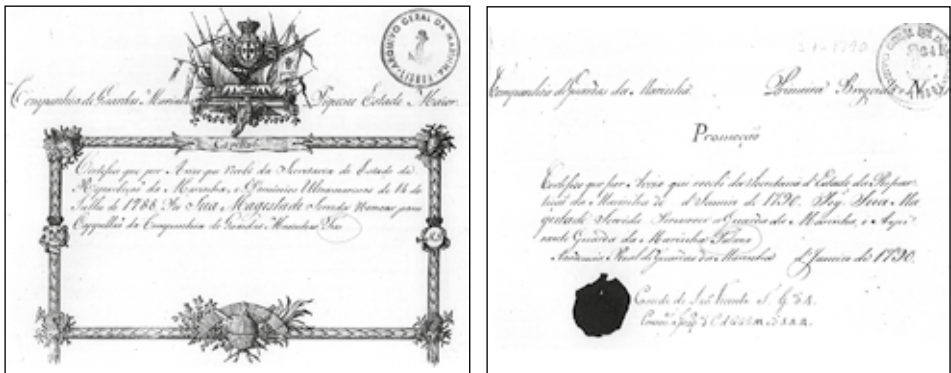 ARQUIVO GERAL DA MARINHA
Companhia de Guardas Marinhas Pequeno Estado Maior
Capellão
Certifico que por Aviso que recebi da Secretaria de Estado da
Repartição da Marinha, e Dominios Ultramarinos de 14 de
Julho de 1788. Foi Sua Magestade Servida Nomear para
Cappellão da Companhia de Guardas Marinhas Frei
Companhia de Guardas da Marinha. Primeira Brigada N.
Promoção
Certifico que por Aviso que recebi da Secretaria d'Estado da Repar
tição da Marinha de d'Janeiro de 1790. Foy Sua Ma
gestade Servida Promover a Guarda da Marinha, o Aspi
rante Guarda da Marinha Fulano
Academia Real de Guardas da Marinha d'Janeiro de 1790.
Conde de